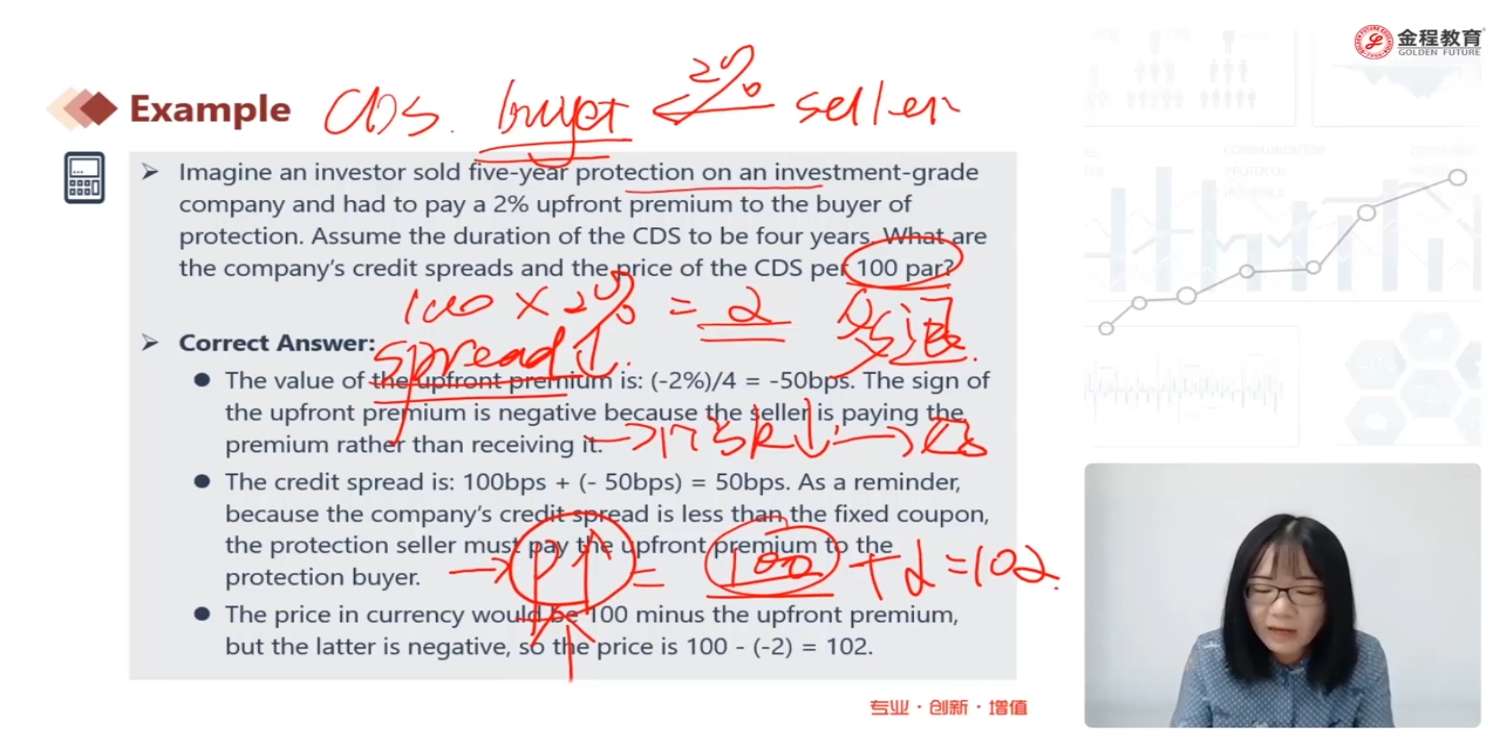 金程教育
GOLDEN FUTURE
Example
CDS. buyer 2% seller
Imagine an investor sold five-year protection on an investment-grade
company and had to pay a 2% upfront premium to the buyer of
protection. Assume the duration of the CDS to be four years. What are
the company's credit spreads and the price of the CDS per 100 par?
100 × 2% = 2 多退.
Correct Answer:
spread↓.
The value of the upfront premium is: (-2%)/4 = -50bps. The sign of
the upfront premium is negative because the seller is paying the
premium rather than receiving it.
→ risk↓ →
The credit spread is: 100bps + (- 50bps) = 50bps. As a reminder,
because the company's credit spread is less than the fixed coupon,
the protection seller must pay the upfront premium to the
protection buyer.
→ P↑ = 100 + 2 = 102.
The price in currency would be 100 minus the upfront premium,
but the latter is negative, so the price is 100 - (-2) = 102.
专业·创新·增值